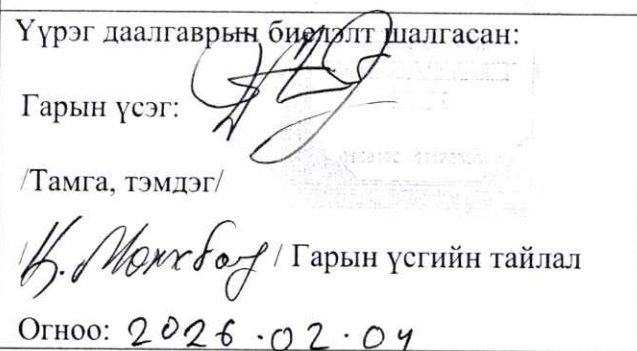 Үүрэг даалгаврын биелэлт шалгасан:
Гарын үсэг:
/Тамга, тэмдэг/
/ Мөнхбат / Гарын үсгийн тайлал
Огноо: 2026.02.04